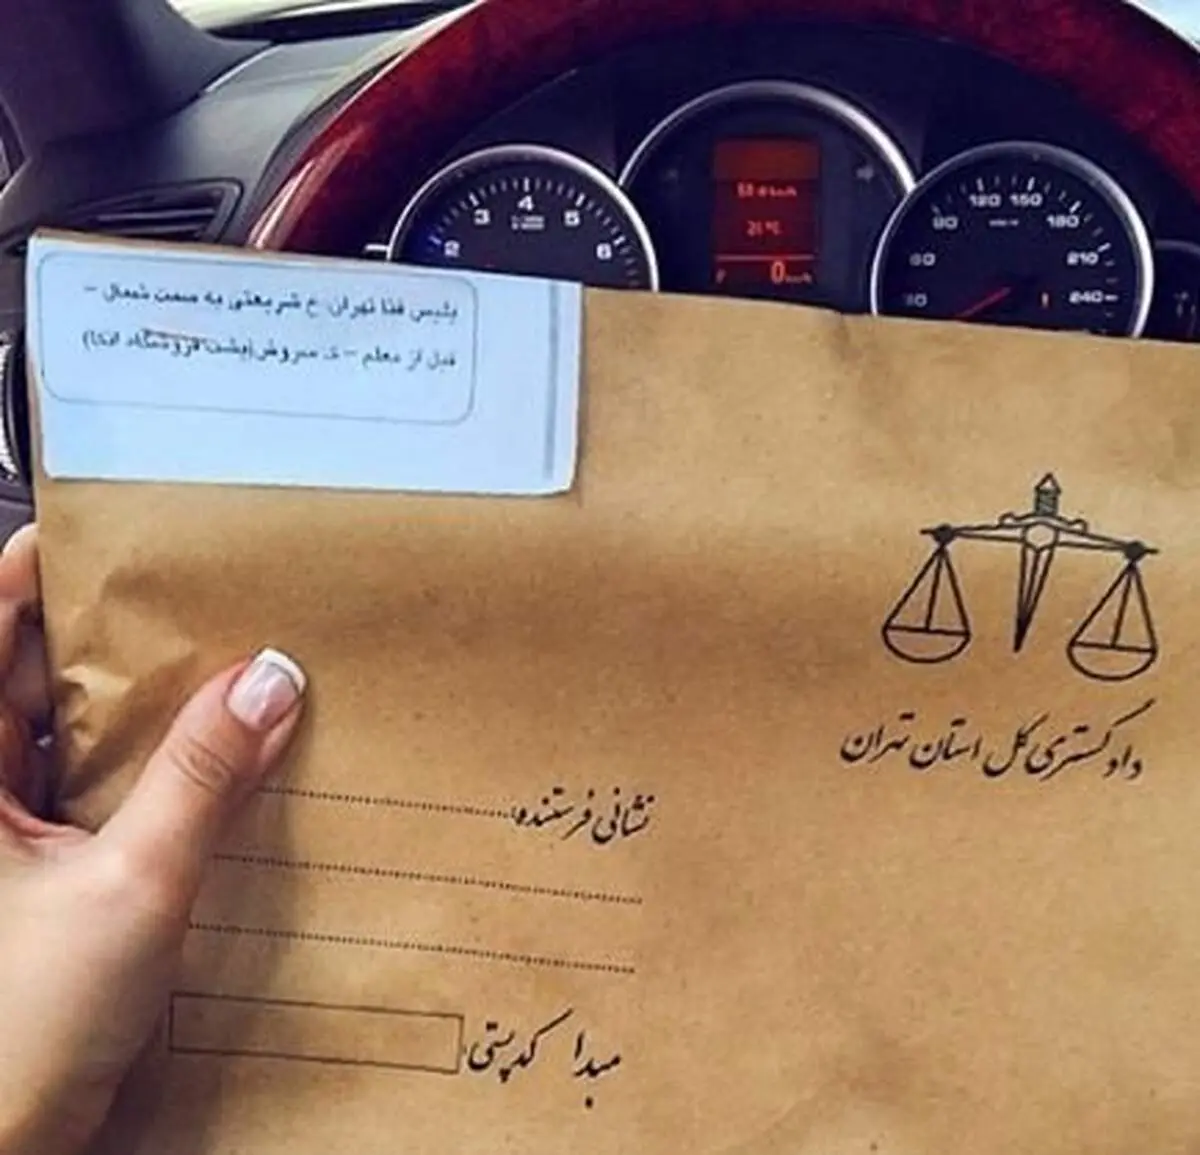 پلیس فتا تهران: خ شریعتی به سمت شمال -
قبل از معلم - خ سروش (پشت فروشگاه اتکا)
دادگستری کل استان تهران
نشانی فرستنده:
مبدا کدپستی:
2 3 4 5 6
21°C
0 km/h
90 120 150 180 210 240